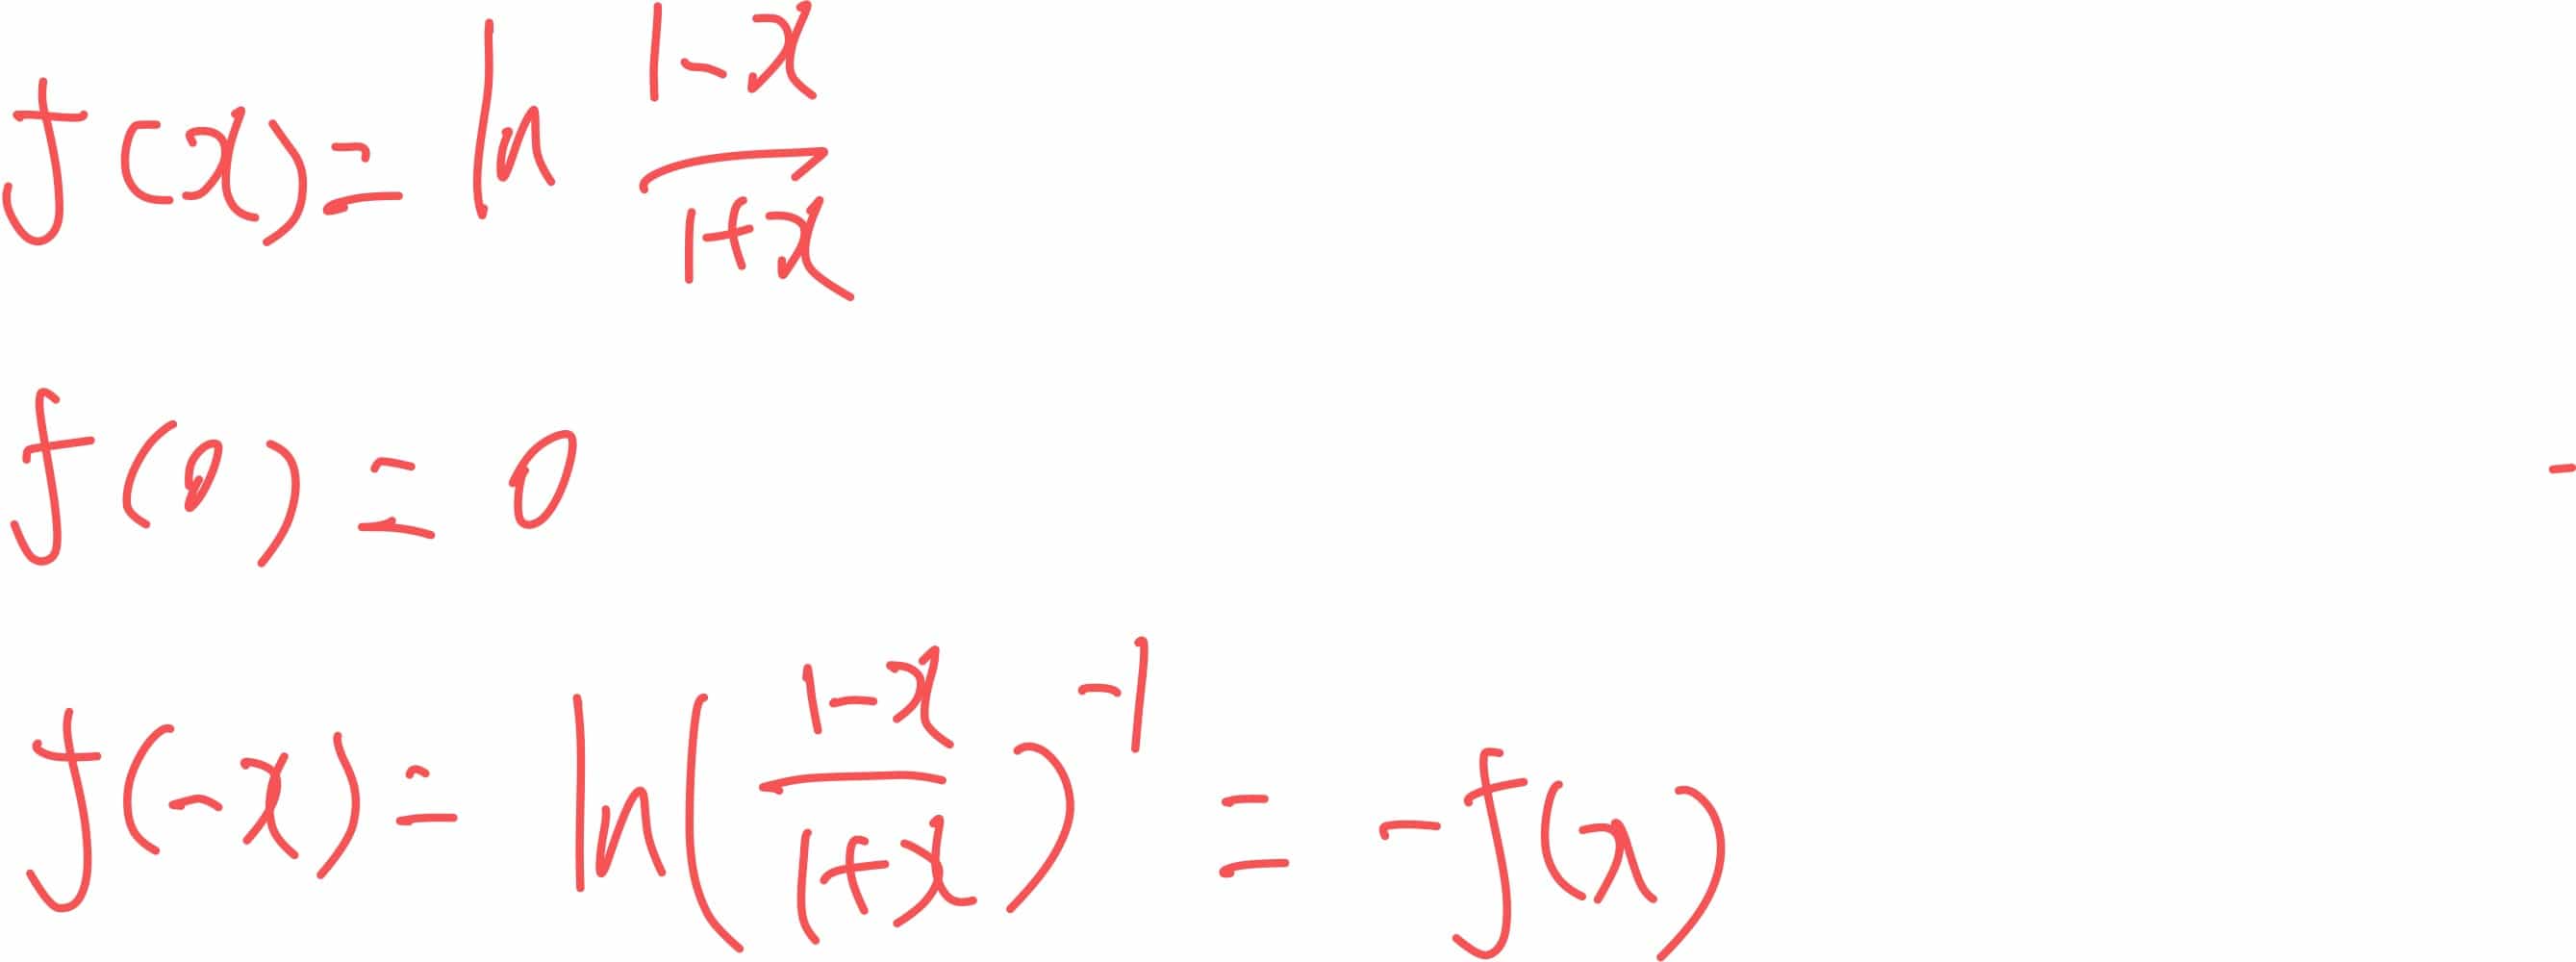 f(x) = ln (1-x)/(1+x)
f(0) = 0
-
f(-x) = ln((1-x)/(1+x))^-1 = -f(x)